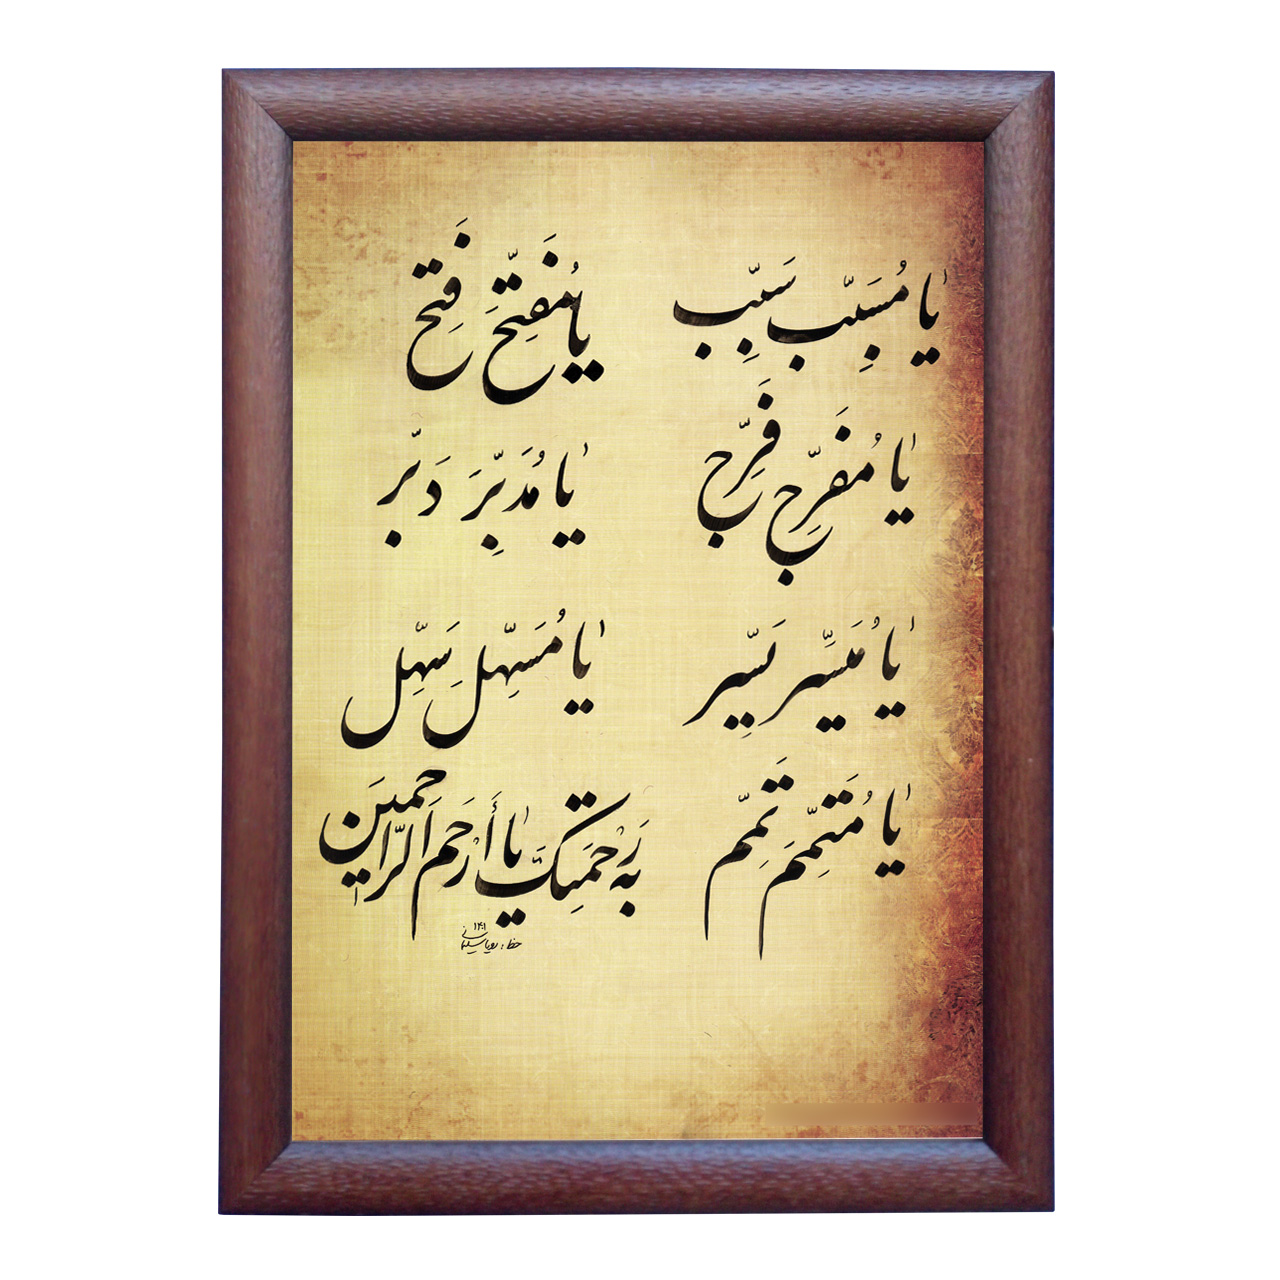 یا مُسَبِّب سَبِّب یا مُفَتِّحَ فَتِّح
یا مُفَرِّج فَرِّج یا مُدَبِّرَ دَبِّر
یا مُیَسِّر یَسِّر یا مُسَهِّلِ سَهِّل
یا مُتَمِّمَ تَمِّم بِه رَحْمَتِکَّ یا أَرْحَم الرّاحِمینَ
۱۴۰۱
خط: رویا سلیمانی